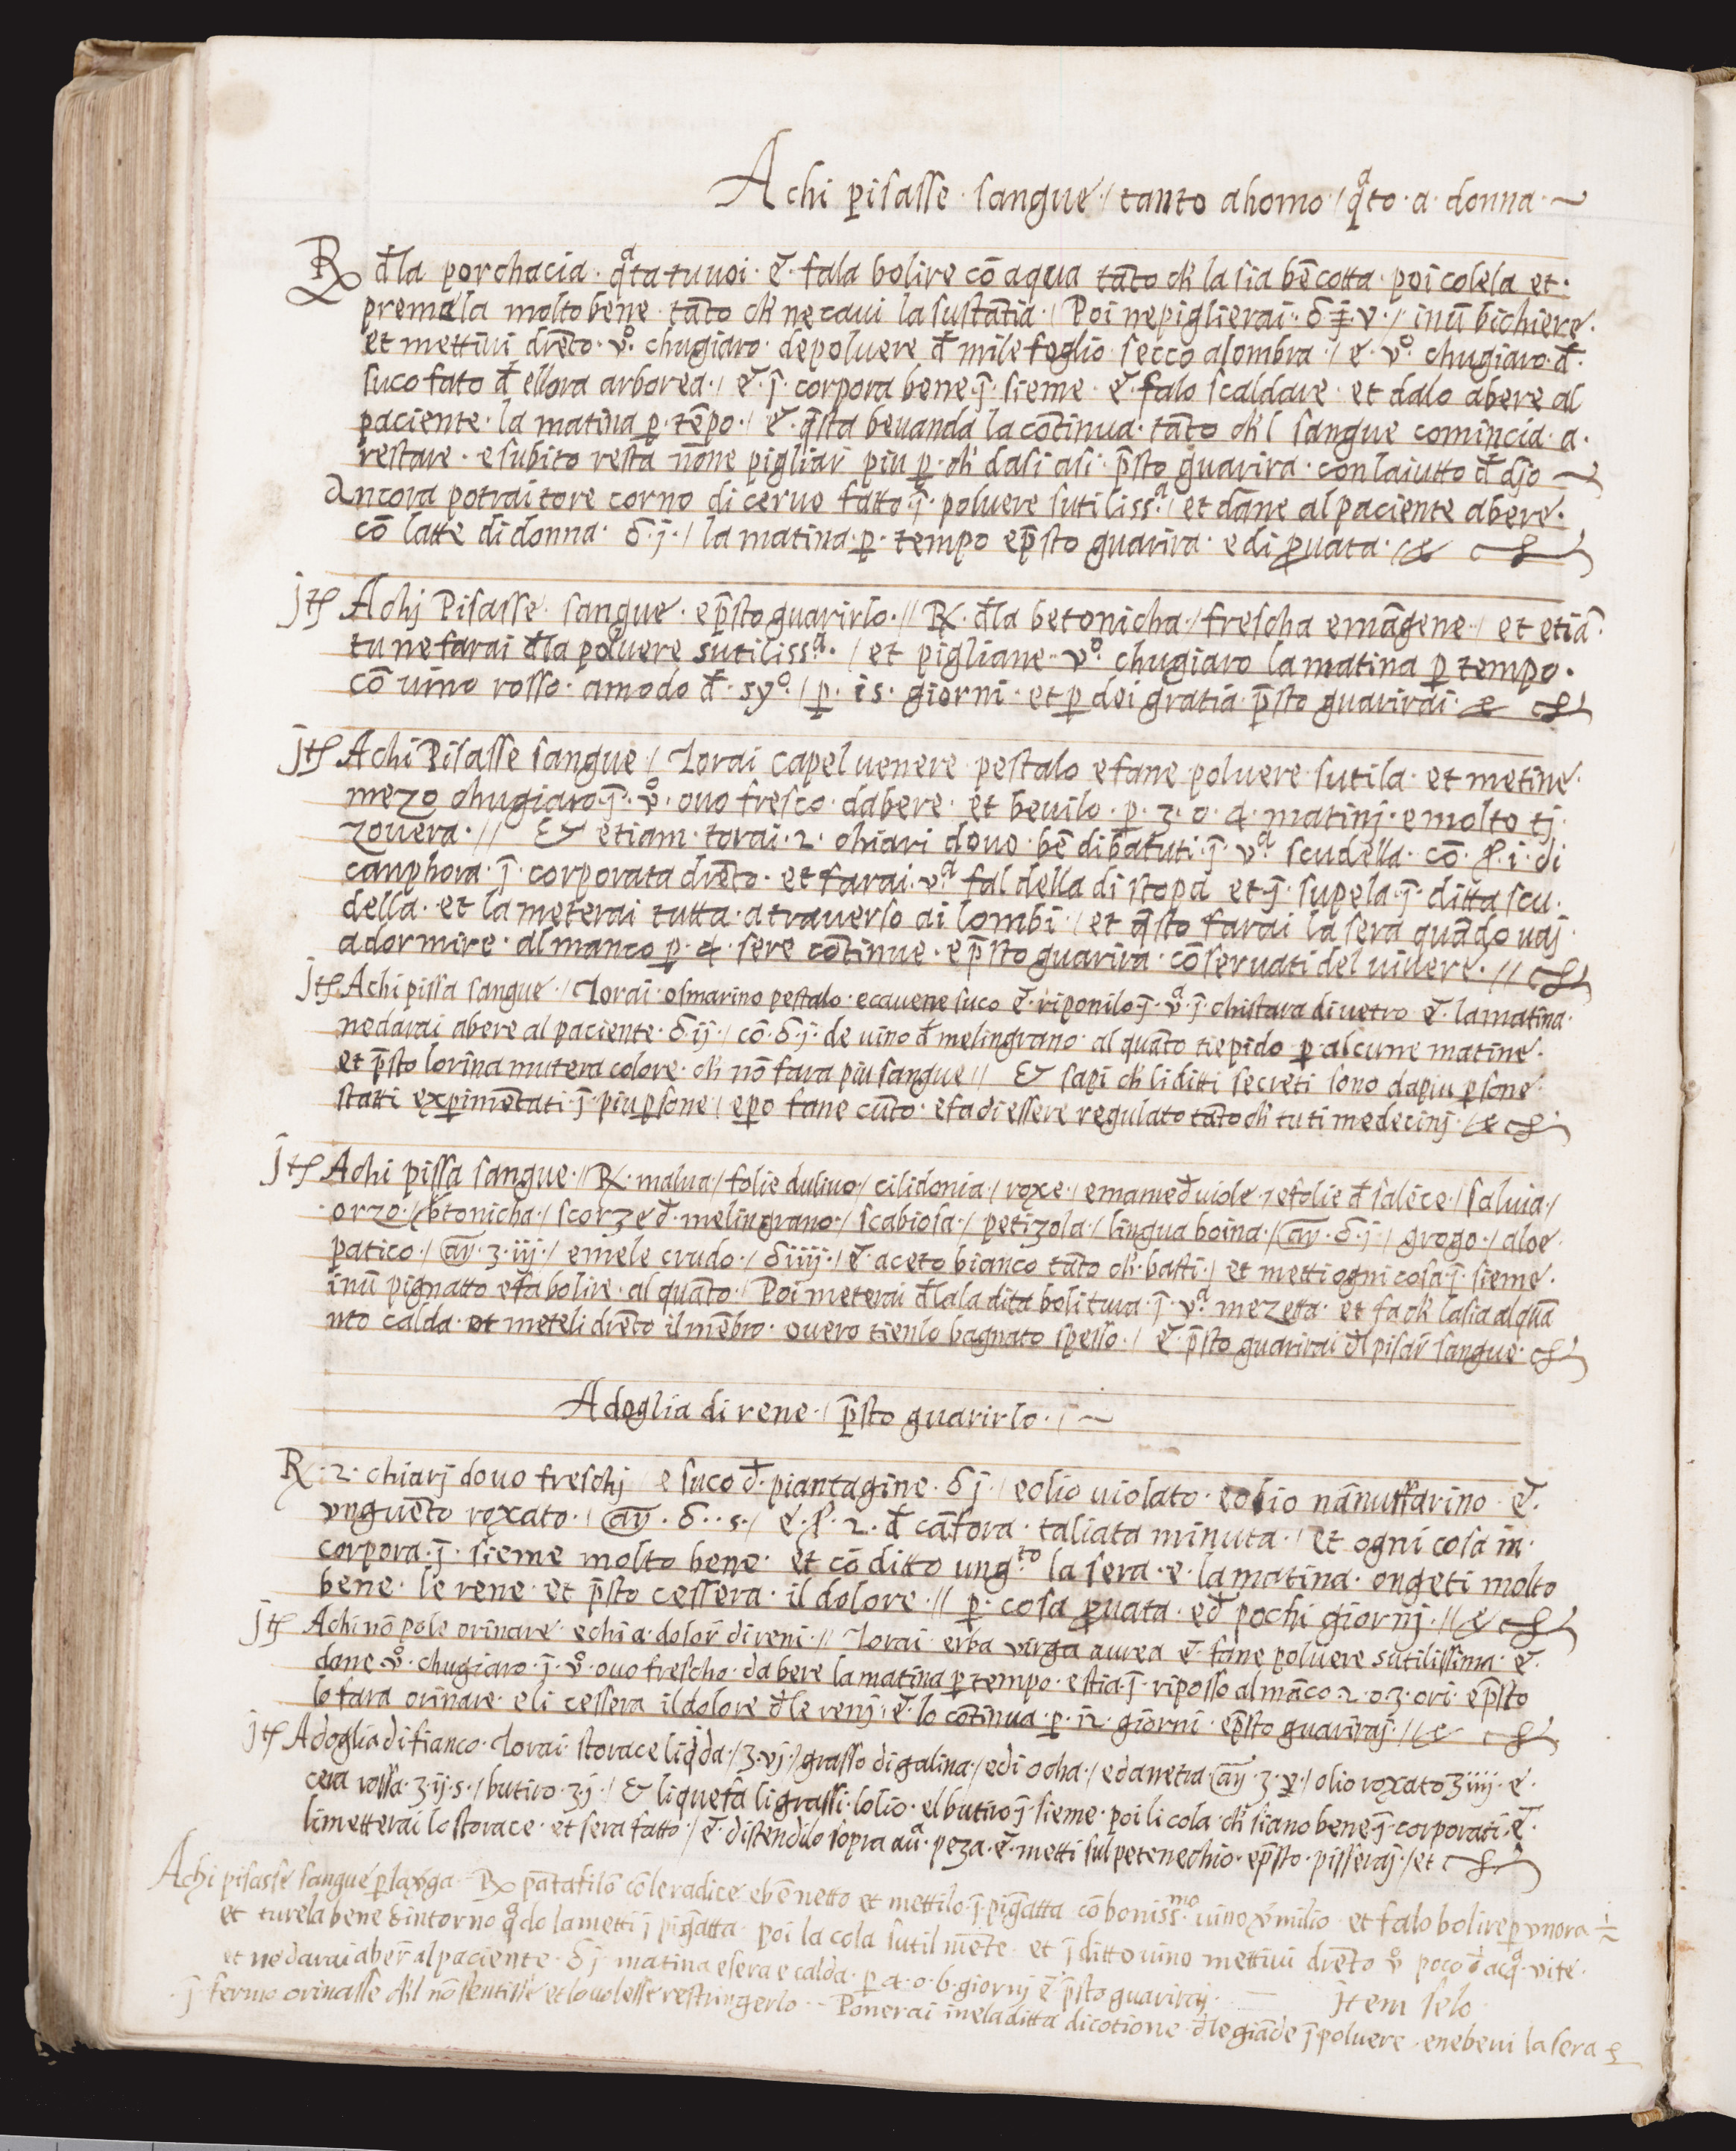 Achi pisasse · sangue / tanto ahomo / q̄ᵃto · a · donna · ~
℞ đla porchacia · q̄ᵃta tu uoi · et · fala bolire cō aqua tāto ch' la sia bē cotta · poi colela et ·
premela molto bene · tāto ch' ne caui la sustātia · / Poi ne piglierai · v · / inū bichiere ·
et mettiui drēto · vº · chugiaro · de poluere đ mile foglio secco alombra · / e · vº · chugiaro · đ ·
suco fato đ ellora arborea · / et · j̄ · corpora bene · j̄ · sieme · et · falo scaldare · et dalo abere al
paciente · la matina p̱ · tēpo · / et · q̄sta beuanda la cōtinua · tāto ch'l sangue comincia · a ·
restare · e subito resta nōne pigliar piu p̱ · ch' dasi asi · p̄sto guarira · con laiutto đ djo ~
Ancora potrai tore corno di ceruo fatto · j̄ · poluere sutilissᵃ · / et dāne al paciente abere ·
cō latte di donna · δ · j · / la matina · p̱ · tempo e p̄sto guarira · e di ꝓuata ·
jtē Achj Pisasse · sangue · e p̄sto guarirlo · // ℞ · đla betonicha · / frescha e māgene · / et etiā ·
tu ne farai đla poluere sutilissᵃ · / et pigliane · vº · chugiaro la matina p̱ tempo ·
cō uino rosso · amodo đ · syº · / p̱ · 15 · giorni · et p̱ dei gratia · p̄sto guarirai ·
jtē Achi Pisasse sangue / Torai capel uenere · pestalo e fane poluere · sutila · et metine ·
mezo chugiaro · j̄ · vº · ouo fresco · dabere · et beuilo · p̱ · 3 · o · 4 · matinj · e molto tj ·
zouera · // Et etiam · torai · 2 · chiari douo · bē dibatuti · j̄ · vᵃ · scudella · cō · i · di
canphora · j̄ · corporata drēto · et farai · vᵃ · faldella di stopa et · j̄ · supela · j̄ · ditta scu ·
della · et la meterai tutta · atrauerso ai lombi · / et q̄sto farai la sera quādo uaj ·
a dormire · al manco p̱ · 4 · sere cōtinue · e p̄sto guarira · cōseruati del uiuere · //
jtē Achi pissa sangue · / Torai · osmarino pestalo · e cauene suco et · riponilo · j̄ · vᵃ · j̄ · chistara di uetro et · la matina ·
ne darai abere al paciente · δ ij · / cō · δ · j · de uino đ melingrano · al quāto tiepido · p̱ · alcune matine ·
et p̄sto lorina mutera colore · ch' nō fara piu sangue // Et sapi ch' li ditti secreti sono da piu p̱sone ·
statti exp̱imētati · j̄ · piu p̱sone / e po fane cūto · e fa di essere regulato tāto ch' tu ti medecinj · /
jtē Achi pissa sangue · // ℞ · malua · / folie duliuo · / cilidonia · / roxe · / e mamed' uiole · / e folie đ salēce · / saluia · /
· orzo · / btonicha · / scorze đ · melingrano · / scabiosa · / petizola · / lingua boina · / aṉ · δ · j · / grogo · / aloe ·
patico · / aṉ · ʒ · iij · / e mele crudo · / δ iiij · / et · aceto bianco tāto ch' · basti · / et metti ogni cosa · j̄ · sieme ·
inū pignatto e fa bolire · al quāto · / Poi meterai đla la dita bolitura · j̄ · vᵃ · mezetta · et fa ch' la sia al quā
nto calda · et meteli drēto il mēbro · ouero tienlo bagnato spesso · / et · p̄sto guarirai đl pisar̄ sangue ·
Adoglia di rene · / p̄sto guarirlo · / ~
℞ · 2 · chiarj douo freschj / e suco đ · piantagine · δ j · / e olio uiolato · e olio nānuffarino · et ·
vnguēto roxato · / aṉ · δ · · s · / et · 2 · đ cāfora · taliata minuta · / et ogni cosa in ·
corpora · j̄ · sieme molto bene · et cō ditto ungᵗᵒ · la sera · e · la matina · ongeti molto
bene · le rene · et p̄sto cessera · il dolore · // p̱ · cosa ꝓuata · ed' pochi giornj · //
jtē Achi nō pole orinare · e chi a · dolor̄ di reni · // Torai · erba virga aurea et · fane poluere sutilissima · et ·
dane · vº · chugiaro · j̄ · vº · ouo frescho · da bere la matina p̱ tempo · e stia · j̄ · riposso al māco · 2 · o · 3 · ori · e p̄sto
lo fara orinare · e li cessera il dolore đle renj · et · lo cōtinua · p̱ · 12 · giorni · e p̄sto guariraj · //
jtē Adoglia di fianco · Torai · storace liq̄da · / ʒ · vj · / grasso di galina · / e di ocha · / e danetra · aṉ · ʒ · v · / olio roxato ʒ iiij · e ·
cera rossa · ʒ · ij · s · / butiro · ʒ · j · / Et liquefa li grassi · lolio · el butiro j̄ · sieme · poi li cola · ch' siano bene · j̄ · corporati · et ·
li metterai lo storace · et sera fatto · / et · distendilo sopra auᵃ · peza · et · metti sul petenechio · e p̄sto · pisseraj · / et
Achi pisasse sangue p̱ la v̄ga · ℞ pātafilō cō le radice e bē netto et mettilo · j̄ · pigñatta cō bonissᵐᵒ · uino v̄milio · et falo bolire p̱ vnora
et turela bene dintorno q̄ᵃdo la metti j̄ pigñatta · poi la cola sutil mēte · et j̄ ditto uino mettiui drēto vº poco đ acq̄ᵃ · vite ·
et ne darai aber̄ al paciente · δ j · matina e sera e calda · p̱ 4 · o · 6 · giornj et p̄sto guariraj · — Jtem selo ·
j̄ fermo orinasse ch'l nō sentisse et lo uolesse restringerlo · – Ponerai inela ditta dicotione · đle giāde j̄ poluere · e ne beui la sera